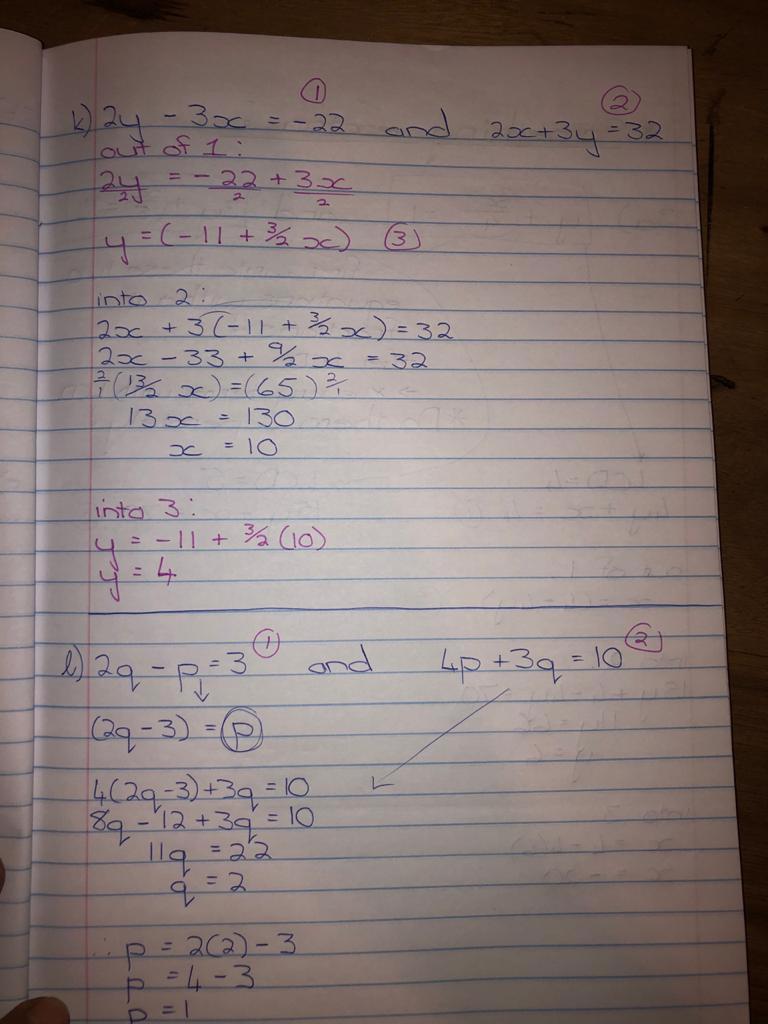 ①
②
k) 2y - 3x = -22 and 2x+3y = 32
out of 1:
2y/2 = -22/2 + 3x/2
y = (-11 + 3/2 x) ③
into 2:
2x + 3(-11 + 3/2 x) = 32
2x - 33 + 9/2 x = 32
2/1 (13/2 x) = (65) 2/1
13x = 130
x = 10
into 3:
y = -11 + 3/2 (10)
y = 4
① ②
l) 2q - p = 3 and 4p + 3q = 10
(2q-3) = p
4(2q-3)+3q = 10
8q - 12 + 3q = 10
11q = 22
q = 2
∴ p = 2(2) - 3
p = 4 - 3
p = 1